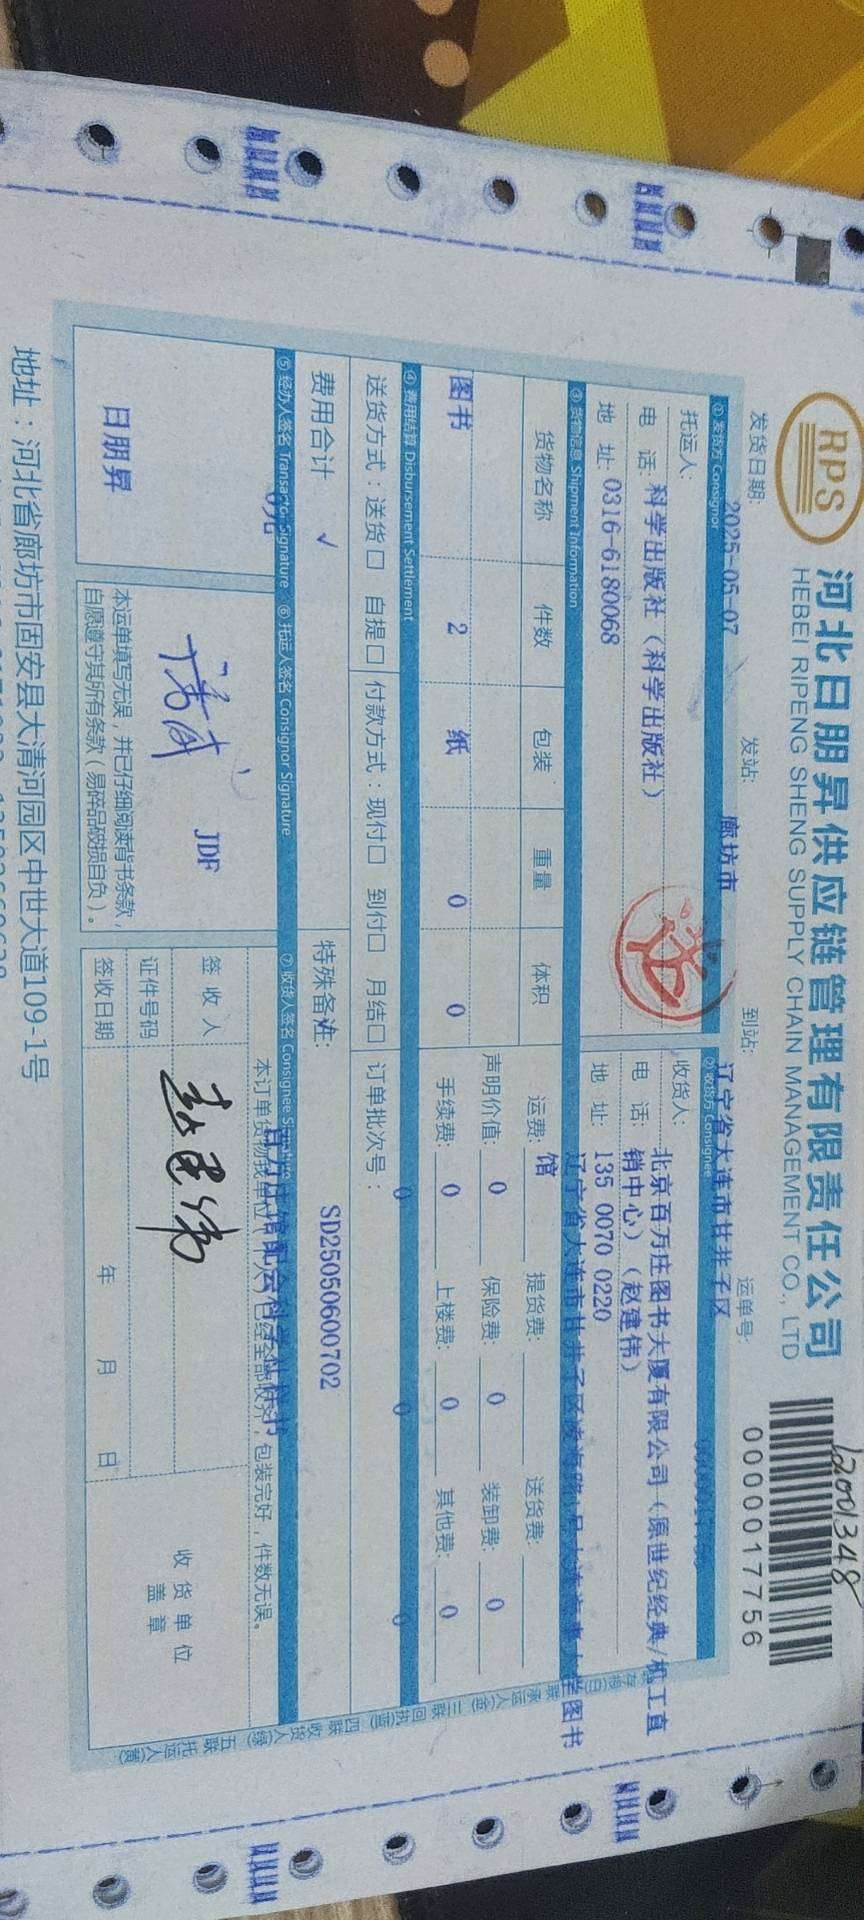 RPS
河北日朋昇供应链管理有限责任公司
HEBEI RIPENG SHENG SUPPLY CHAIN MANAGEMENT CO., LTD
12001348
0000017756
发货日期:
2025-05-07
发站:
廊坊市
到站:
辽宁省大连市甘井子区
运单号:
① 发货方 Consignor
② 收货方 Consignee
托运人:
科学出版社（科学出版社）
电 话:
0316-6180068
地 址:
送
收货人:
北京百万庄图书大厦有限公司（原世纪经典/机工直
销中心）（赵建伟）
电 话:
135 0070 0220
地 址:
辽宁省大连市甘井子区凌海路1号大连海事大学图书
馆
③ 货物信息 Shipment Information
货物名称 件数 包装 重量 体积
图书 2 纸 0 0
运费: 提货费: 送货费:
声明价值: 0 保险费: 0 装卸费: 0
手续费: 0 上楼费: 0 其他费: 0
④ 费用结算 Disbursement Settlement
0 0 0
送货方式：送货□ 自提□ 付款方式：现付□ 到付□ 月结□ 订单批次号：
SD25050600702
费用合计 √
特殊备注:
0元
⑤ 经办人签名 Transactor Signature
⑥ 托运人签名 Consignor Signature
⑦ 收货人签名 Consignee Signature
日朋昇
JDF
本运单填写无误，并已仔细阅读背书条款，
自愿遵守其所有条款（易碎品破损自负）。
包装完好，件数无误。
签 收 人
赵建伟
证件号码
签收日期 年 月 日
收 货 单 位
盖 章
地址：河北省廊坊市固安县大清河园区中世大道109-1号